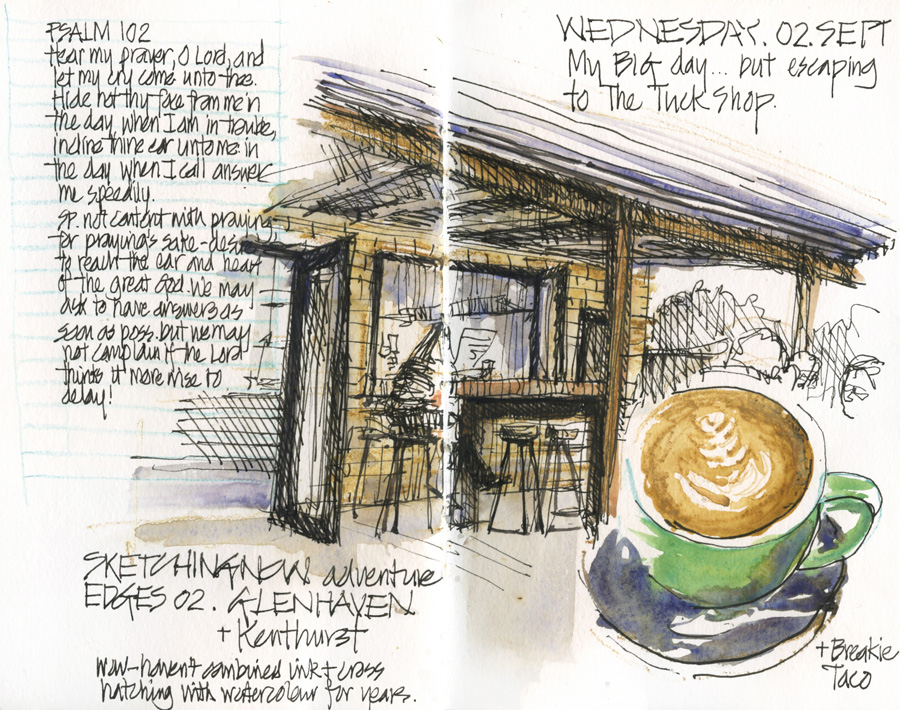 PSALM 102
Hear my prayer, O Lord, and
let my cry come unto thee.
Hide not thy face from me in
the day when I am in trouble,
incline thine ear unto me: in
the day when I call answer
me speedily.
SP. not content with praying
for praying's sake - des
to reach the ear and heart
of the great God. We may
ask to have answers as
soon as poss. but we may
not complain if the Lord
thinks it more wise to
delay!
WEDNESDAY. 02. SEPT
My BIG day... but escaping
to The Tuck Shop.
SKETCHINGNOW adventure
EDGES 02. GLENHAVEN
+ Kenthurst
wow - haven't combined ink + cross
hatching with watercolour for years.
+ Breakie
Taco